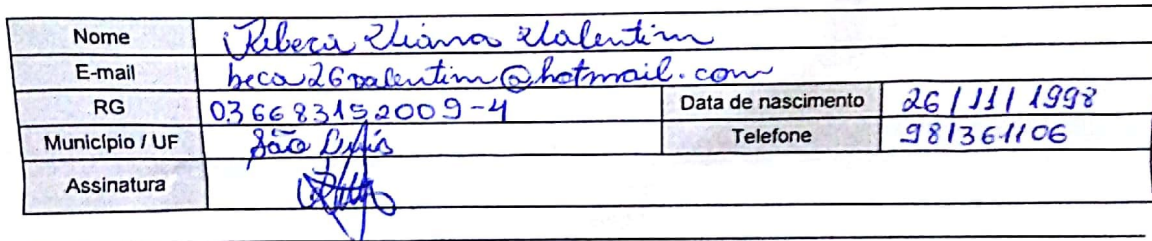 Nome Rebeca Viana Valentim
E-mail beca26valentim@hotmail.com
RG 036683152009-4 Data de nascimento 26/11/1998
Município / UF São Luís Telefone 981361106
Assinatura